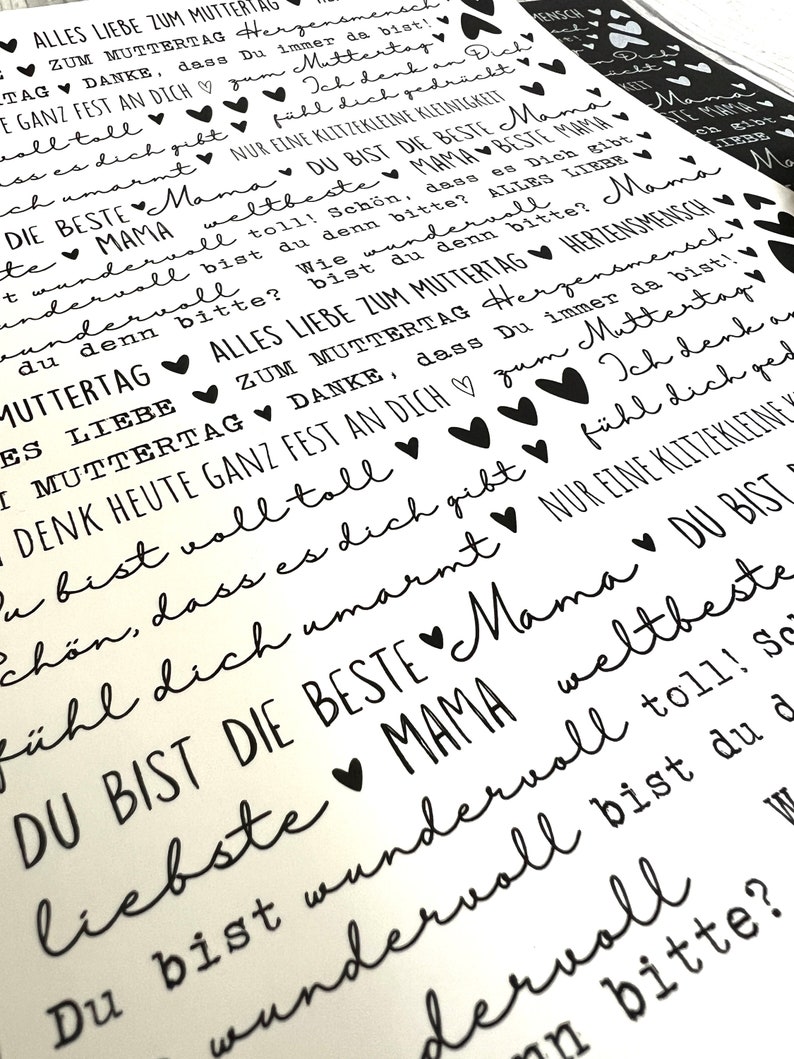 ALLES LIEBE ZUM MUTTERTAG
ZUM MUTTERTAG Herzensmensch
TAG DANKE, dass Du immer da bist!
GANZ FEST AN DICH zum Muttertag Ich denk an Dich
voll toll fühl dich gedrückt
dass es dich gibt NUR EINE KLITZEKLEINE KLEINIGKEIT
umarmt DU BIST DIE BESTE Mama
DIE BESTE Mama MAMA BESTE MAMA
MAMA weltbeste Schön, dass es Dich gibt
wundervoll toll! ALLES LIEBE
wundervoll bist du denn bitte? Mama
wundervoll Wie wundervoll
du denn bitte? bist du denn bitte?
MUTTERTAG ALLES LIEBE ZUM MUTTERTAG HERZENSMENSCH
LIEBE ZUM MUTTERTAG Herzensmensch
MUTTERTAG DANKE, dass Du immer da bist!
DENK HEUTE GANZ FEST AN DICH zum Muttertag
Du bist voll toll Ich denk an
Schön, dass es dich gibt fühl dich
fühl dich umarmt NUR EINE KLITZEKLEINE
DU BIST DIE BESTE Mama DU BIST
liebste MAMA weltbeste
Du bist wundervoll toll!
wundervoll bist du
wundervoll
denn bitte?
MENSCH
an Dich
Mama
BESTE MAMA
gibt
LIEBE